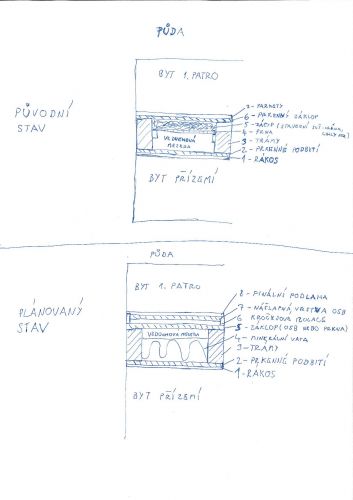 PŮDA
BYT 1. PATRO
PŮVODNÍ
STAV
7 - PARKETY
6 - PRKENNÝ ZÁKLOP
5 - ZÁSYP (STAVEBNÍ SUŤ
4 - PRKNA
VZDUCHOVÁ
MEZERA
3 - TRÁMY
2 - PRKENNÉ PODBITÍ
1 - RÁKOS
BYT PŘÍZEMÍ
PŮDA
BYT 1. PATRO
PLÁNOVANÝ
STAV
8 - FINÁLNÍ PODLAHA
7 - NÁŠLAPNÁ VRSTVA OSB
6 KROČEJOVÁ IZOLACE
5 - ZÁKLOP (OSB NEBO PRKNA)
VZDUCHOVÁ MEZERA
4 - MINERÁLNÍ VATA
3 - TRÁMY
2 - PRKENNÉ PODBITÍ
1 - RÁKOS
BYT PŘÍZEMÍ